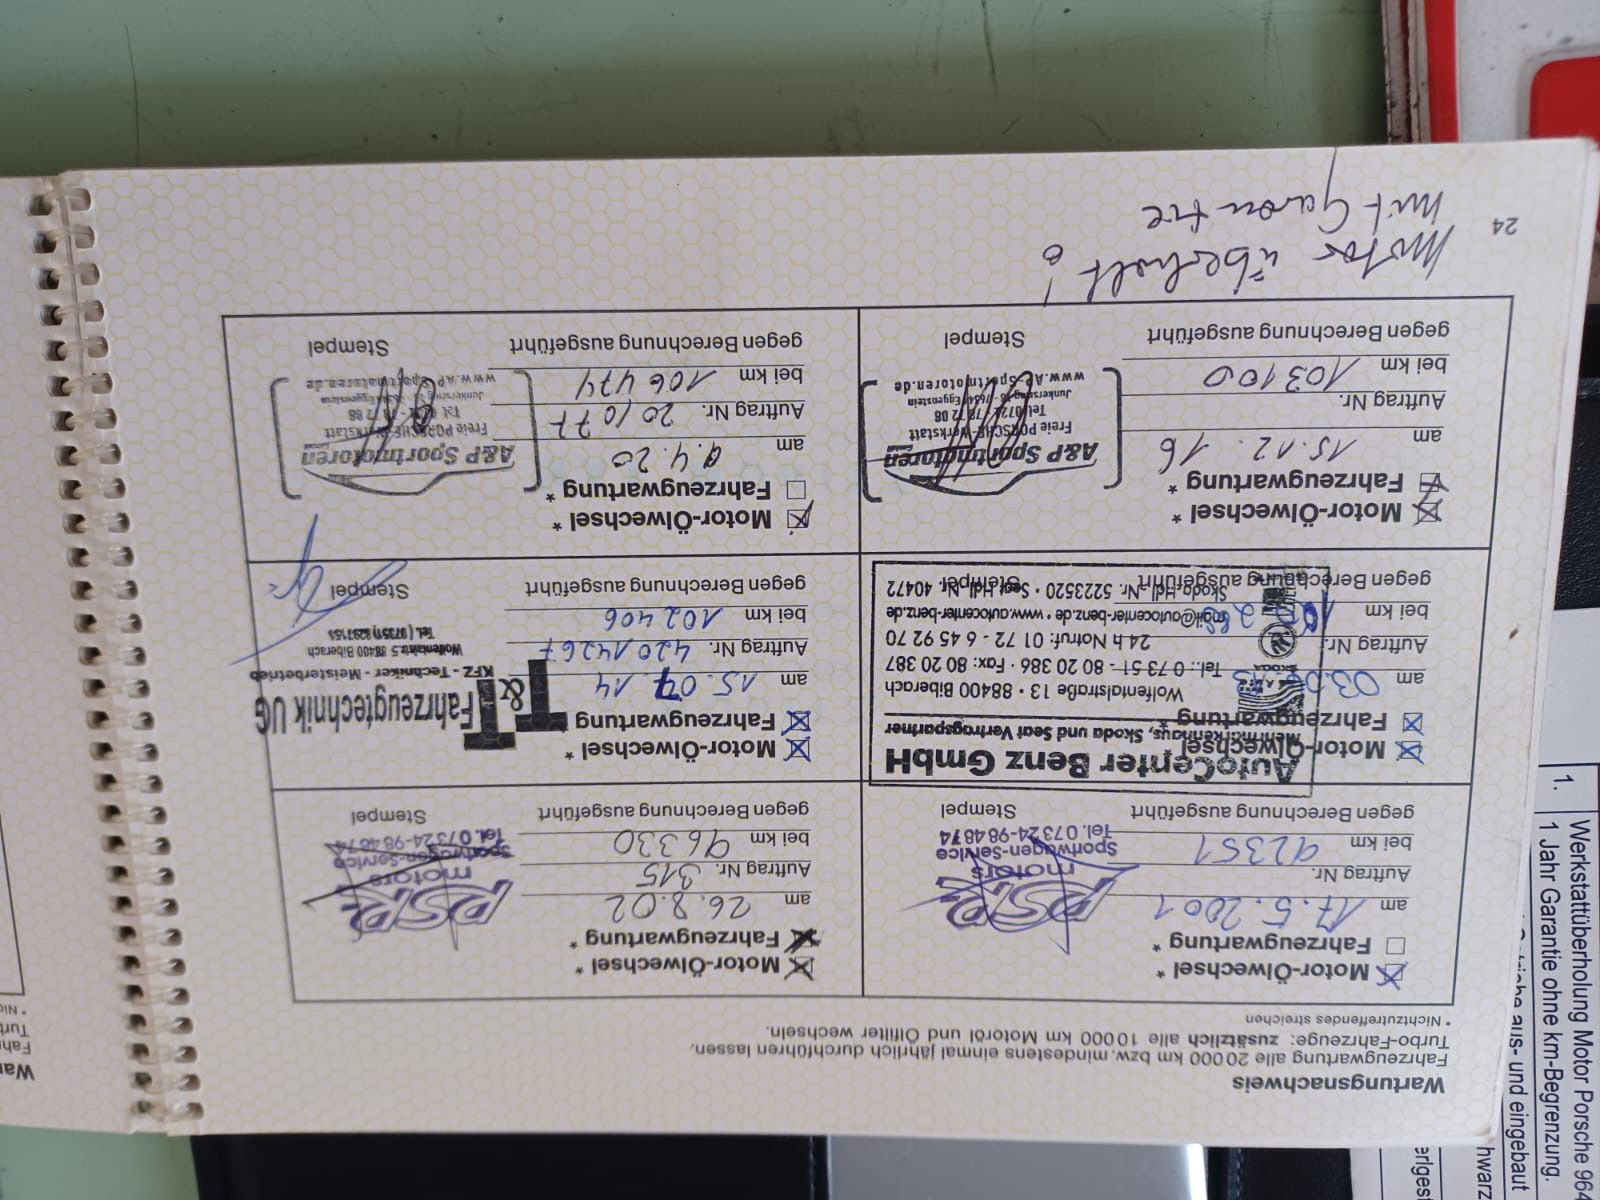 Wartungsnachweis
Fahrzeugwartung alle 20000 km bzw. mindestens einmal jährlich durchführen lassen.
Turbo-Fahrzeuge: zusätzlich alle 10000 km Motoröl und Ölfilter wechseln.
* Nichtzutreffendes streichen
Motor-Ölwechsel *
Fahrzeugwartung *
am 17.5.2001
Auftrag Nr.
bei km 92351
gegen Berechnung ausgeführt
PSR
motors
Sportwagen-Service
Tel. 07324-984874
Stempel
Motor-Ölwechsel *
Fahrzeugwartung *
am 26.8.02
Auftrag Nr. 315
bei km 96330
gegen Berechnung ausgeführt
PSR
motors
Sportwagen-Service
Tel. 07324-984874
Stempel
Motor-Ölwechsel *
Fahrzeugwartung *
am
Auftrag Nr.
bei km
gegen Berechnung ausgeführt
AutoCenter Benz GmbH
Mehrmarkenhaus, Skoda und Seat Vertragspartner
Wolfentalstraße 13 • 88400 Biberach
Tel.: 0 73 51 - 80 20 386 · Fax: 80 20 387
24 h Notruf: 01 72 - 6 45 92 70
mail@autocenter-benz.de • www.autocenter-benz.de
Skoda Hdl.-Nr. 5223520 • Seat Hdl.-Nr. 40472
Stempel
Motor-Ölwechsel *
Fahrzeugwartung *
am 15.07.14
Auftrag Nr. 42014267
bei km 102406
gegen Berechnung ausgeführt
T&T Fahrzeugtechnik UG
KFZ - Techniker - Meisterbetrieb
Wolfentalstr. 5 88400 Biberach
Stempel
Motor-Ölwechsel *
Fahrzeugwartung *
am 15.12.16
Auftrag Nr.
bei km 103100
gegen Berechnung ausgeführt
A&P Sportmotoren
Freie PORSCHE-Werkstatt
www.AP-Sportmotoren.de
Stempel
Motor-Ölwechsel *
Fahrzeugwartung *
am 9.4.20
Auftrag Nr. 201077
bei km 106474
gegen Berechnung ausgeführt
A&P Sportmotoren
Freie PORSCHE-Werkstatt
www.AP-Sportmotoren.de
Stempel
Motor überholt!
mit Garantie
24
1. Werkstattüberholung Motor Porsche 964
1 Jahr Garantie ohne km-Begrenzung.
aus- und eingebaut